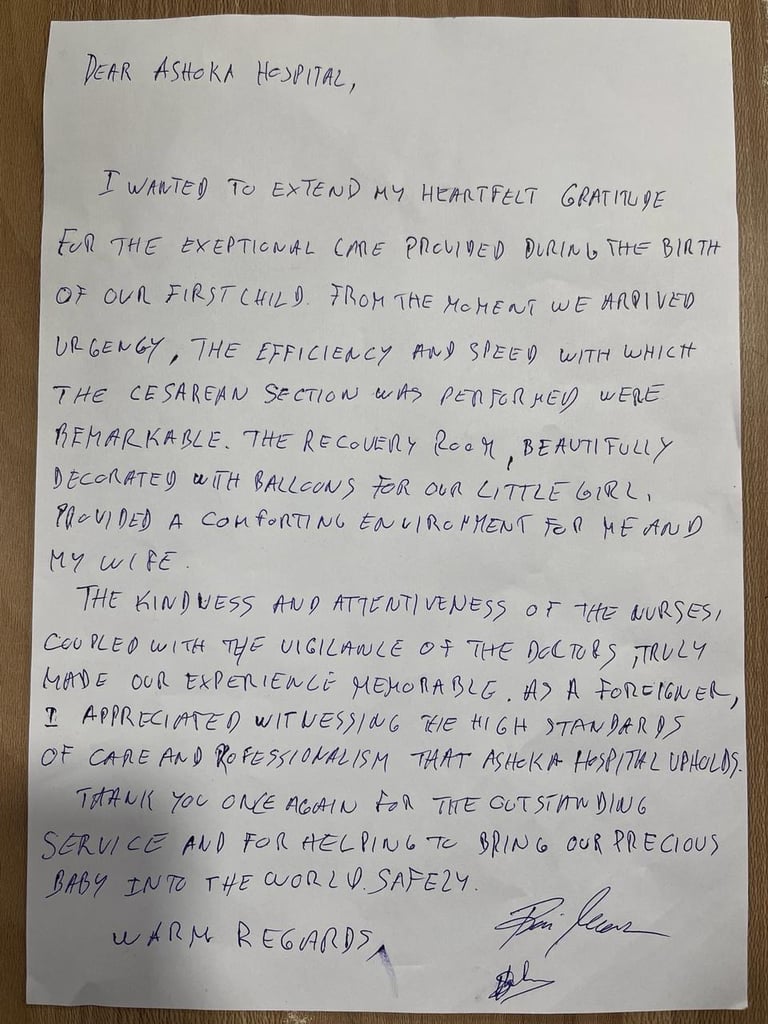 DEAR ASHOKA HOSPITAL,
I WANTED TO EXTEND MY HEARTFELT GRATITUDE
FOR THE EXEPTIONAL CARE PROVIDED DURING THE BIRTH
OF OUR FIRST CHILD. FROM THE MOMENT WE ARRIVED
URGENGY, THE EFFICIENCY AND SPEED WITH WHICH
THE CESAREAN SECTION WAS PERFORMED WERE
REMARKABLE. THE RECOVERY ROOM, BEAUTIFULLY
DECORATED WITH BALLOONS FOR OUR LITTLE GIRL,
PROVIDED A COMFORTING ENVIRONMENT FOR ME AND
MY WIFE.
THE KINDNESS AND ATTENTIVENESS OF THE NURSES,
COUPLED WITH THE VIGILANCE OF THE DOCTORS, TRULY
MADE OUR EXPERIENCE MEMORABLE. AS A FOREIGNER,
I APPRECIATED WITNESSING THE HIGH STANDARDS
OF CARE AND ROFESSIONALISM THAT ASHOKA HOSPITAL UPHOLDS.
THANK YOU ONCE AGAIN FOR THE OUTSTANDING
SERVICE AND FOR HELPING TO BRING OUR PRECIOUS
BABY INTO THE WORLD SAFELY.
WARM REGARDS,